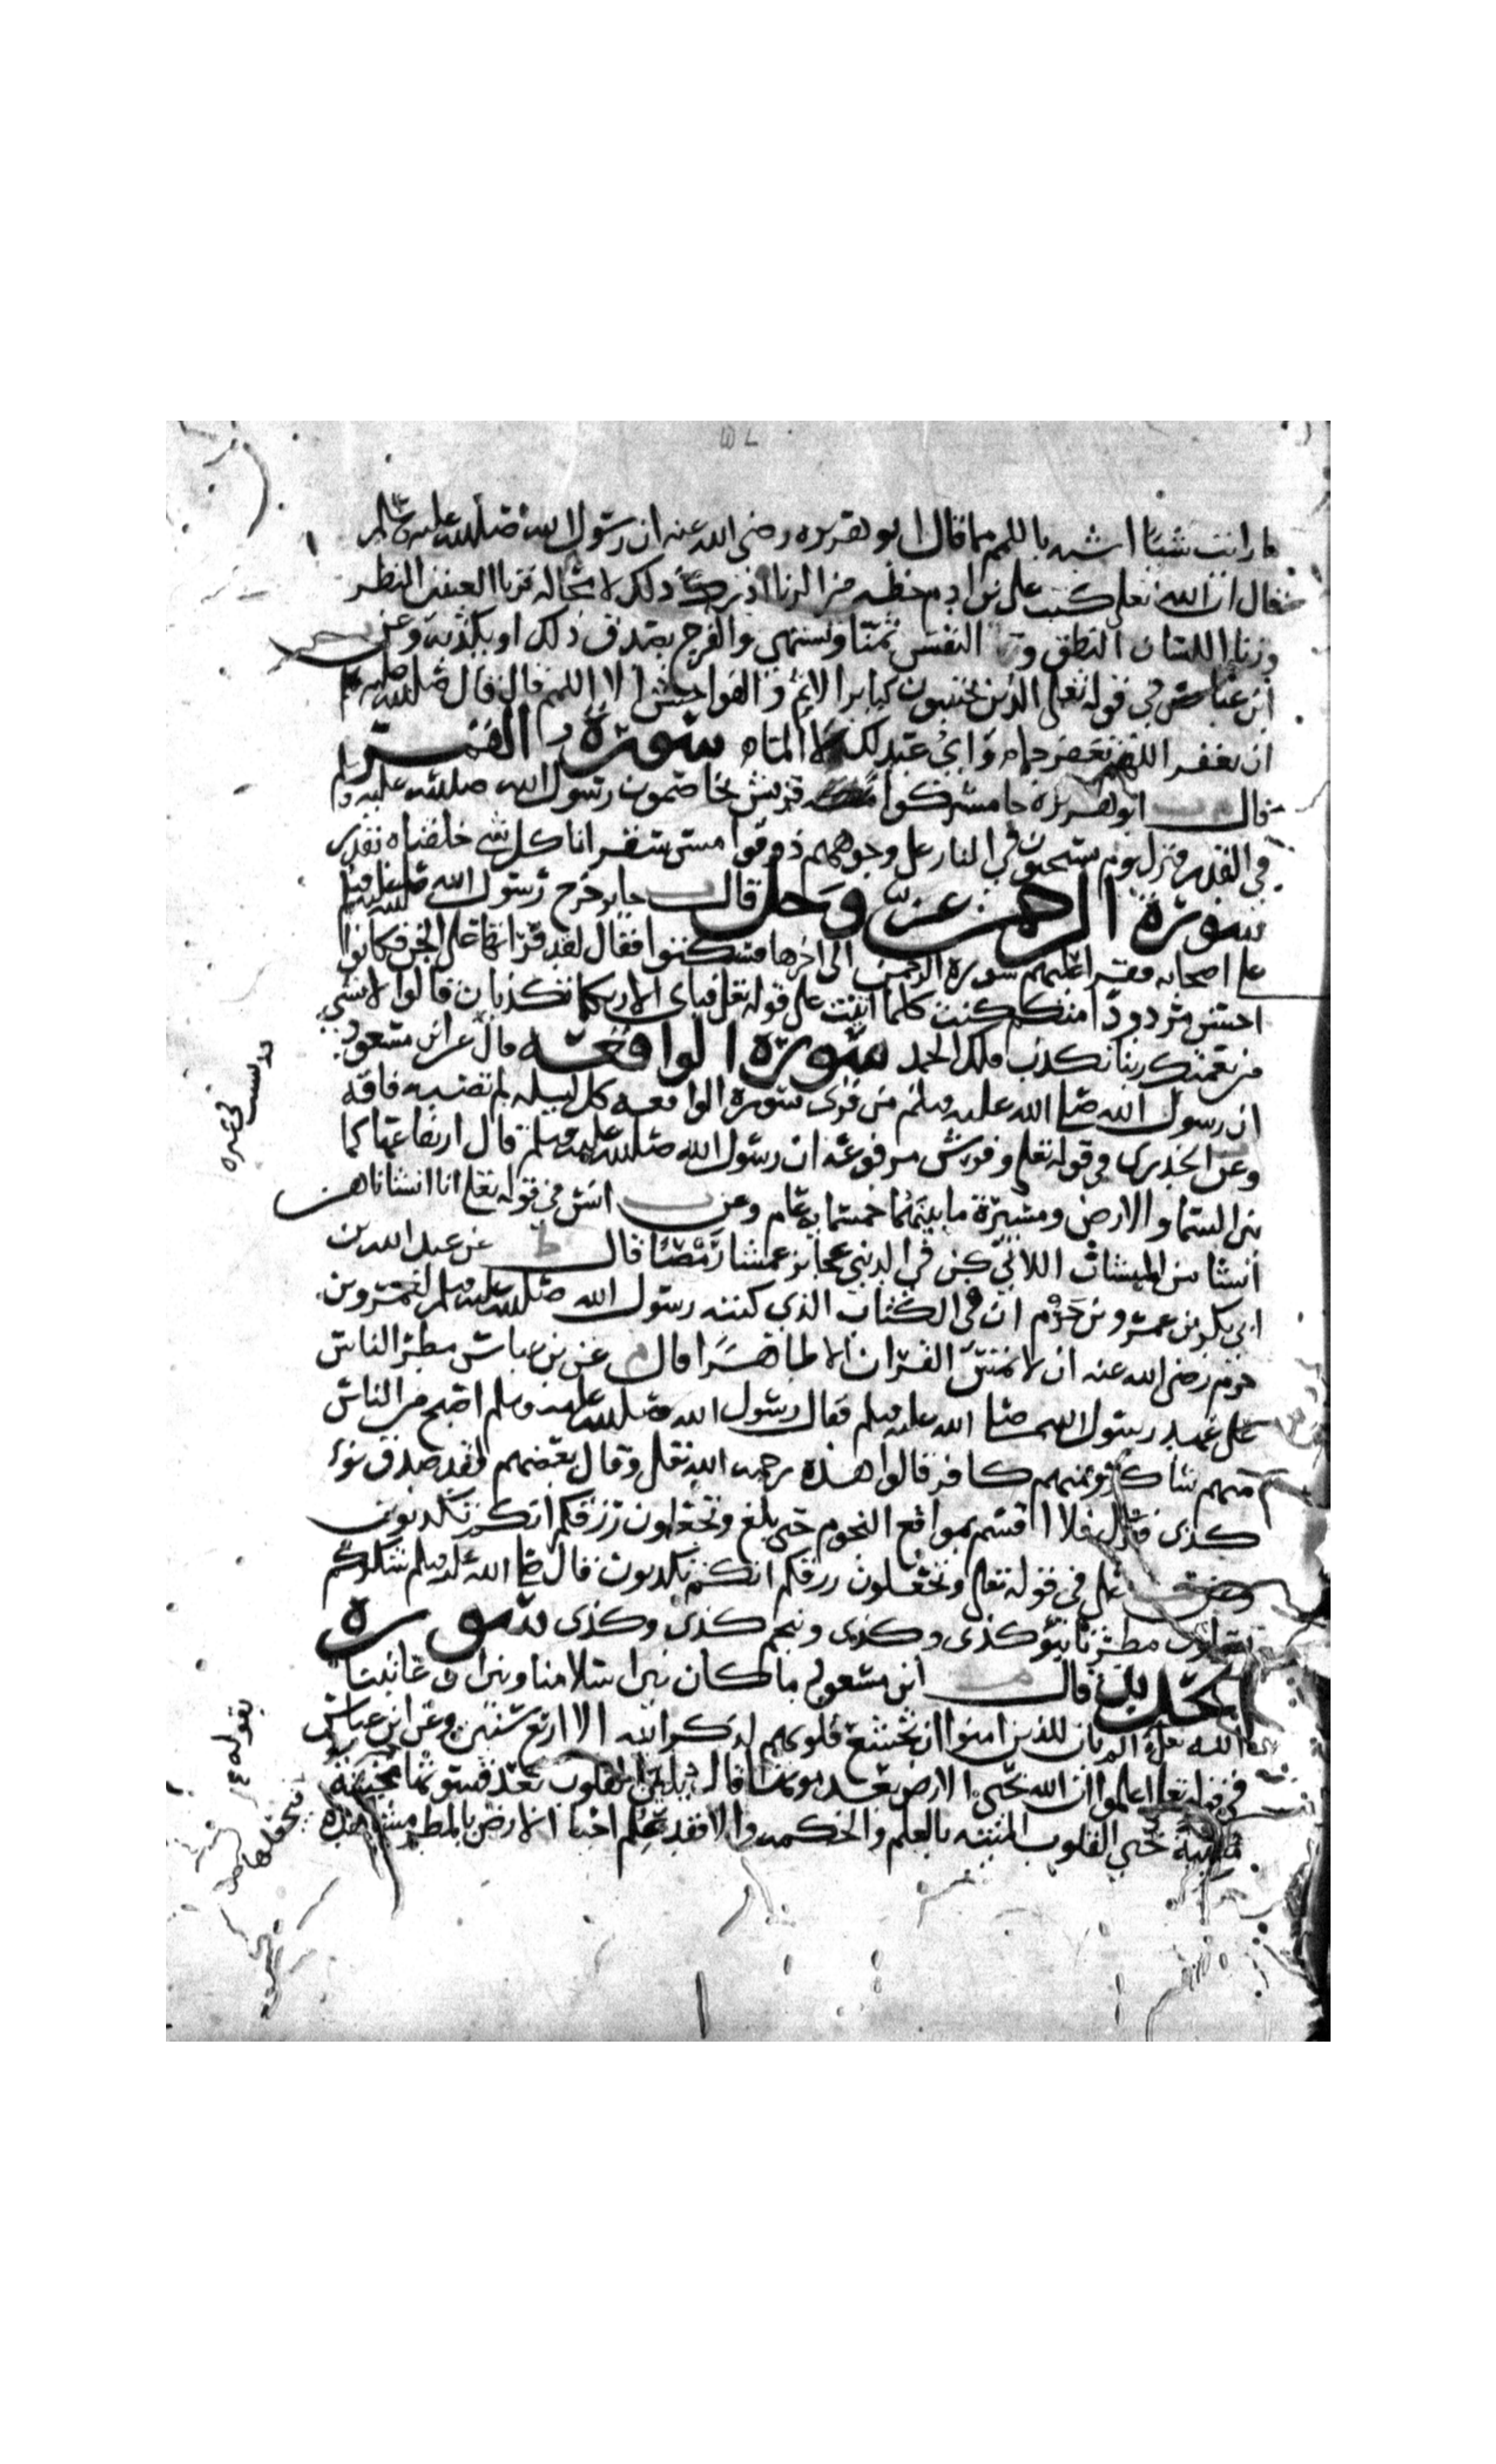 ما رايت شيئا اشبه باللمم مما قال ابو هريره رضى الله عنه ان رسول الله صلى الله عليه وسلم
فقال ان الله تعلى كتب على بن ادم حظه من الزنا ادرك ذلك لا محاله فزنا العينين النظر
وزنا اللسان النطق والنفس تمنا وتشتهي والفرج يصدق ذلك او يكذبه وعن
ابن عباس في قوله تعلى الذين يجتنبون كباير الاثم والفواحش الا اللمم قال قال صلى الله عليه وسلم
ان تغفر اللهم تغفر جما واي عبد لك لا الما سورة القمر
قال ابو هريرة جا مشركوا قريش يخاصمون رسول الله صلى الله عليه وسلم
في القدر فنزل يوم يسحبون في النار على وجوههم ذوقوا مس سقر انا كل شي خلقناه بقدر
سورة الرحمن عز وجل قال جابر خرج رسول الله صلى الله عليه وسلم
على اصحابه فقرا عليهم سورة الرحمن الى اخرها فسكتوا فقال لقد قراتها على الجن فكانوا
احسن مردودا منكم كنت كلما اتيت على قوله تعلى فباي الا ربكما تكذبان قالوا لا بشي
من نعمتك ربنا نكذب فلك الحمد سورة الواقعه قال عن ابن مسعود
ان رسول الله صلى الله عليه وسلم من قرى سورة الواقعه كل ليله لم تصبه فاقه
وعن الخدري في قوله تعلى وفرش مرفوعه ان رسول الله صلى الله عليه وسلم قال ارتفاعها كما
بين السما والارض ومسيرة ما بينهما خمسمايه عام وعن انس في قوله تعلى انا انشاناهن
انشا من المنشات اللاتي كن في الدنيي عجايز عمشا رمصا قال عن عبد الله بن
ابي بكر بن عمرو بن حزم ان في الكتاب الذي كتبه رسول الله صلى الله عليه وسلم لعمرو بن
حزم رضى الله عنه ان لا يمس القران الا طاهرا قال عن بن عباس مطر الناس
على عهد رسول الله صلى الله عليه وسلم فقال رسول الله صلى الله عليه وسلم اصبح من الناس
منهم شاكر ومنهم كافر قالوا هذه رحمه الله تعلى وقال بعضهم لقد صدق نوء
كذى فلا اقسم بمواقع النجوم حتى بلغ وتجعلون رزقكم انكم تكذبون
وعن على في قوله تعلى وتجعلون رزقكم انكم تكذبون قال صلى الله عليه وسلم شكركم
تقولون مطرنا بنؤ كذى وكذى ونجم كذى وكذى سورة
الحديد قال ابن مسعود ما كان بين اسلامنا وبين ان عاتبنا
الله تعلى الم يان للذين امنوا ان تخشع قلوبهم لذكر الله الا اربع سنين وعن ابن عباس
في قوله تعلى اعلموا ان الله يحيى الارض بعد موتها قال يلين القلوب بعد قسوتها
يحيي القلوب الميته بالعلم والحكمه والا فقد علم احيا الارض بالمطر مشاهده